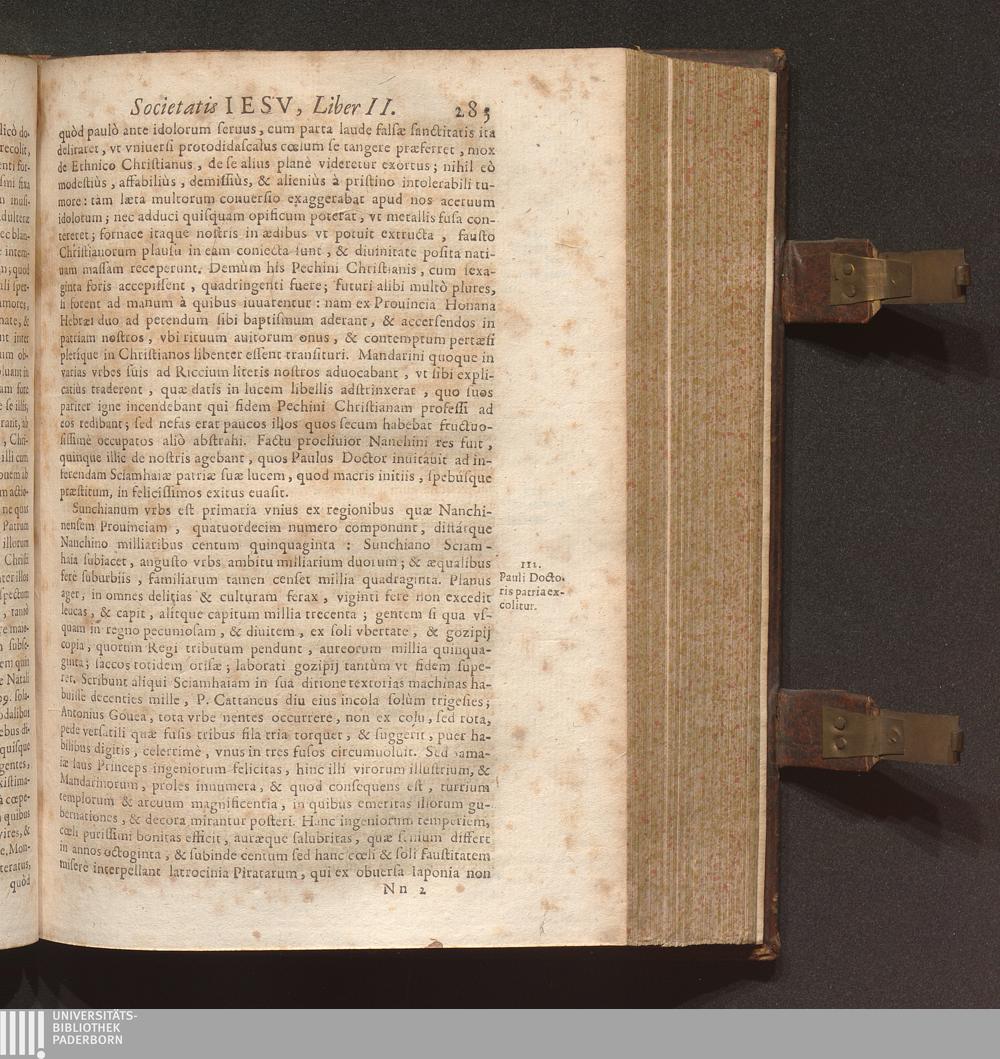 Societatis IESV, Liber II. 285
quòd paulò ante idolorum seruus, cum parta laude falsæ sanctitatis ita
deliraret, vt vniuersi protodidascalus cœlum se tangere præferret, mox
de Ethnico Christianus, de se alius planè videretur exortus; nihil eò
modestiùs, affabiliùs, demissiùs, & alieniùs à pristino intolerabili tu-
more: tàm læta multorum conuersio exaggerabat apud nos aceruum
idolorum; nec adduci quisquam opificum poterat, vt metallis fusa con-
tereret; fornace itaque nostris in ædibus vt potuit extructa, fausto
Christianorum plausu in eam coniecta sunt, & diuinitate posita nati-
uam massam receperunt. Demùm his Pechini Christianis, cum sexa-
ginta foris accepissent, quadringenti fuere; futuri alibi multò plures,
si forent ad manum à quibus iuuarentur: nam ex Prouincia Honana
Hebræi duo ad petendum sibi baptismum aderant, & accersendos in
patriam nostros, vbi rituum auitorum onus, & contemptum pertæsi
plerique in Christianos libenter essent transituri. Mandarini quoque in
varias vrbes suis ad Riccium literis nostros aduocabant, vt sibi expli-
catiùs traderent, quæ datis in lucem libellis adstrinxerat, quo suos
pariter igne incendebant qui fidem Pechini Christianam professi ad
eos redibant; sed nefas erat paucos illos quos secum habebat fructuo-
sissimè occupatos aliò abstrahi. Factu procliuior Nanchini res fuit,
quinque illic de nostris agebant, quos Paulus Doctor inuitauit ad in-
ferendam Sciamhaiæ patriæ suæ lucem, quod macris initiis, spebúsque
præstitum, in felicissimos exitus euasit.
Sunchianum vrbs est primaria vnius ex regionibus quæ Nanchi-
nensem Prouinciam, quatuordecim numero componunt, distárque
Nanchino milliaribus centum quinquaginta: Sunchiano Sciam-
haia subiacet, angusto vrbs ambitu milliarium duorum; & æqualibus
fere suburbiis, familiarum tamen censet millia quadraginta. Planus
ager, in omnes delitias & culturam ferax, viginti fere non excedit
leucas, & capit, alitque capitum millia trecenta; gentem si qua vs-
quam in regno pecuniosam, & diuitem, ex soli vbertate, & gozipij
copia, quorum Regi tributum pendunt, aureorum millia quinqua-
ginta; saccos totidem orisæ; laborati gozipij tantùm vt fidem supe-
ret. Scribunt aliqui Sciamhaiam in sua ditione textorias machinas ha-
buisse decenties mille, P. Cattaneus diu eius incola solùm trigesies;
Antonius Gouea, tota vrbe nentes occurrere, non ex colu, sed rota,
pede versatili quæ fusis tribus fila tria torquet, & suggerit, puer ha-
bilibus digitis, celerrimè, vnus in tres fusos circumuoluit. Sed
iæ laus Princeps ingeniorum felicitas, hinc illi virorum illustrium, &
Mandarinorum, proles innumera, & quod consequens est, turrium
templorum & arcuum magnificentia, in quibus emeritas illorum gu-
bernationes, & decora mirantur posteri. Hanc ingeniorum temperiem,
cœli purissimi bonitas efficit, auræque salubritas, quæ senium differt
in annos octoginta, & subinde centum sed hanc cœli & soli faustitatem
miserè interpellant latrocinia Piratarum, qui ex obuersa Iaponia non
Nn 2
III.
Pauli Docto-
ris patria ex-
colitur.
UNIVERSITÄTS-
BIBLIOTHEK
PADERBORN